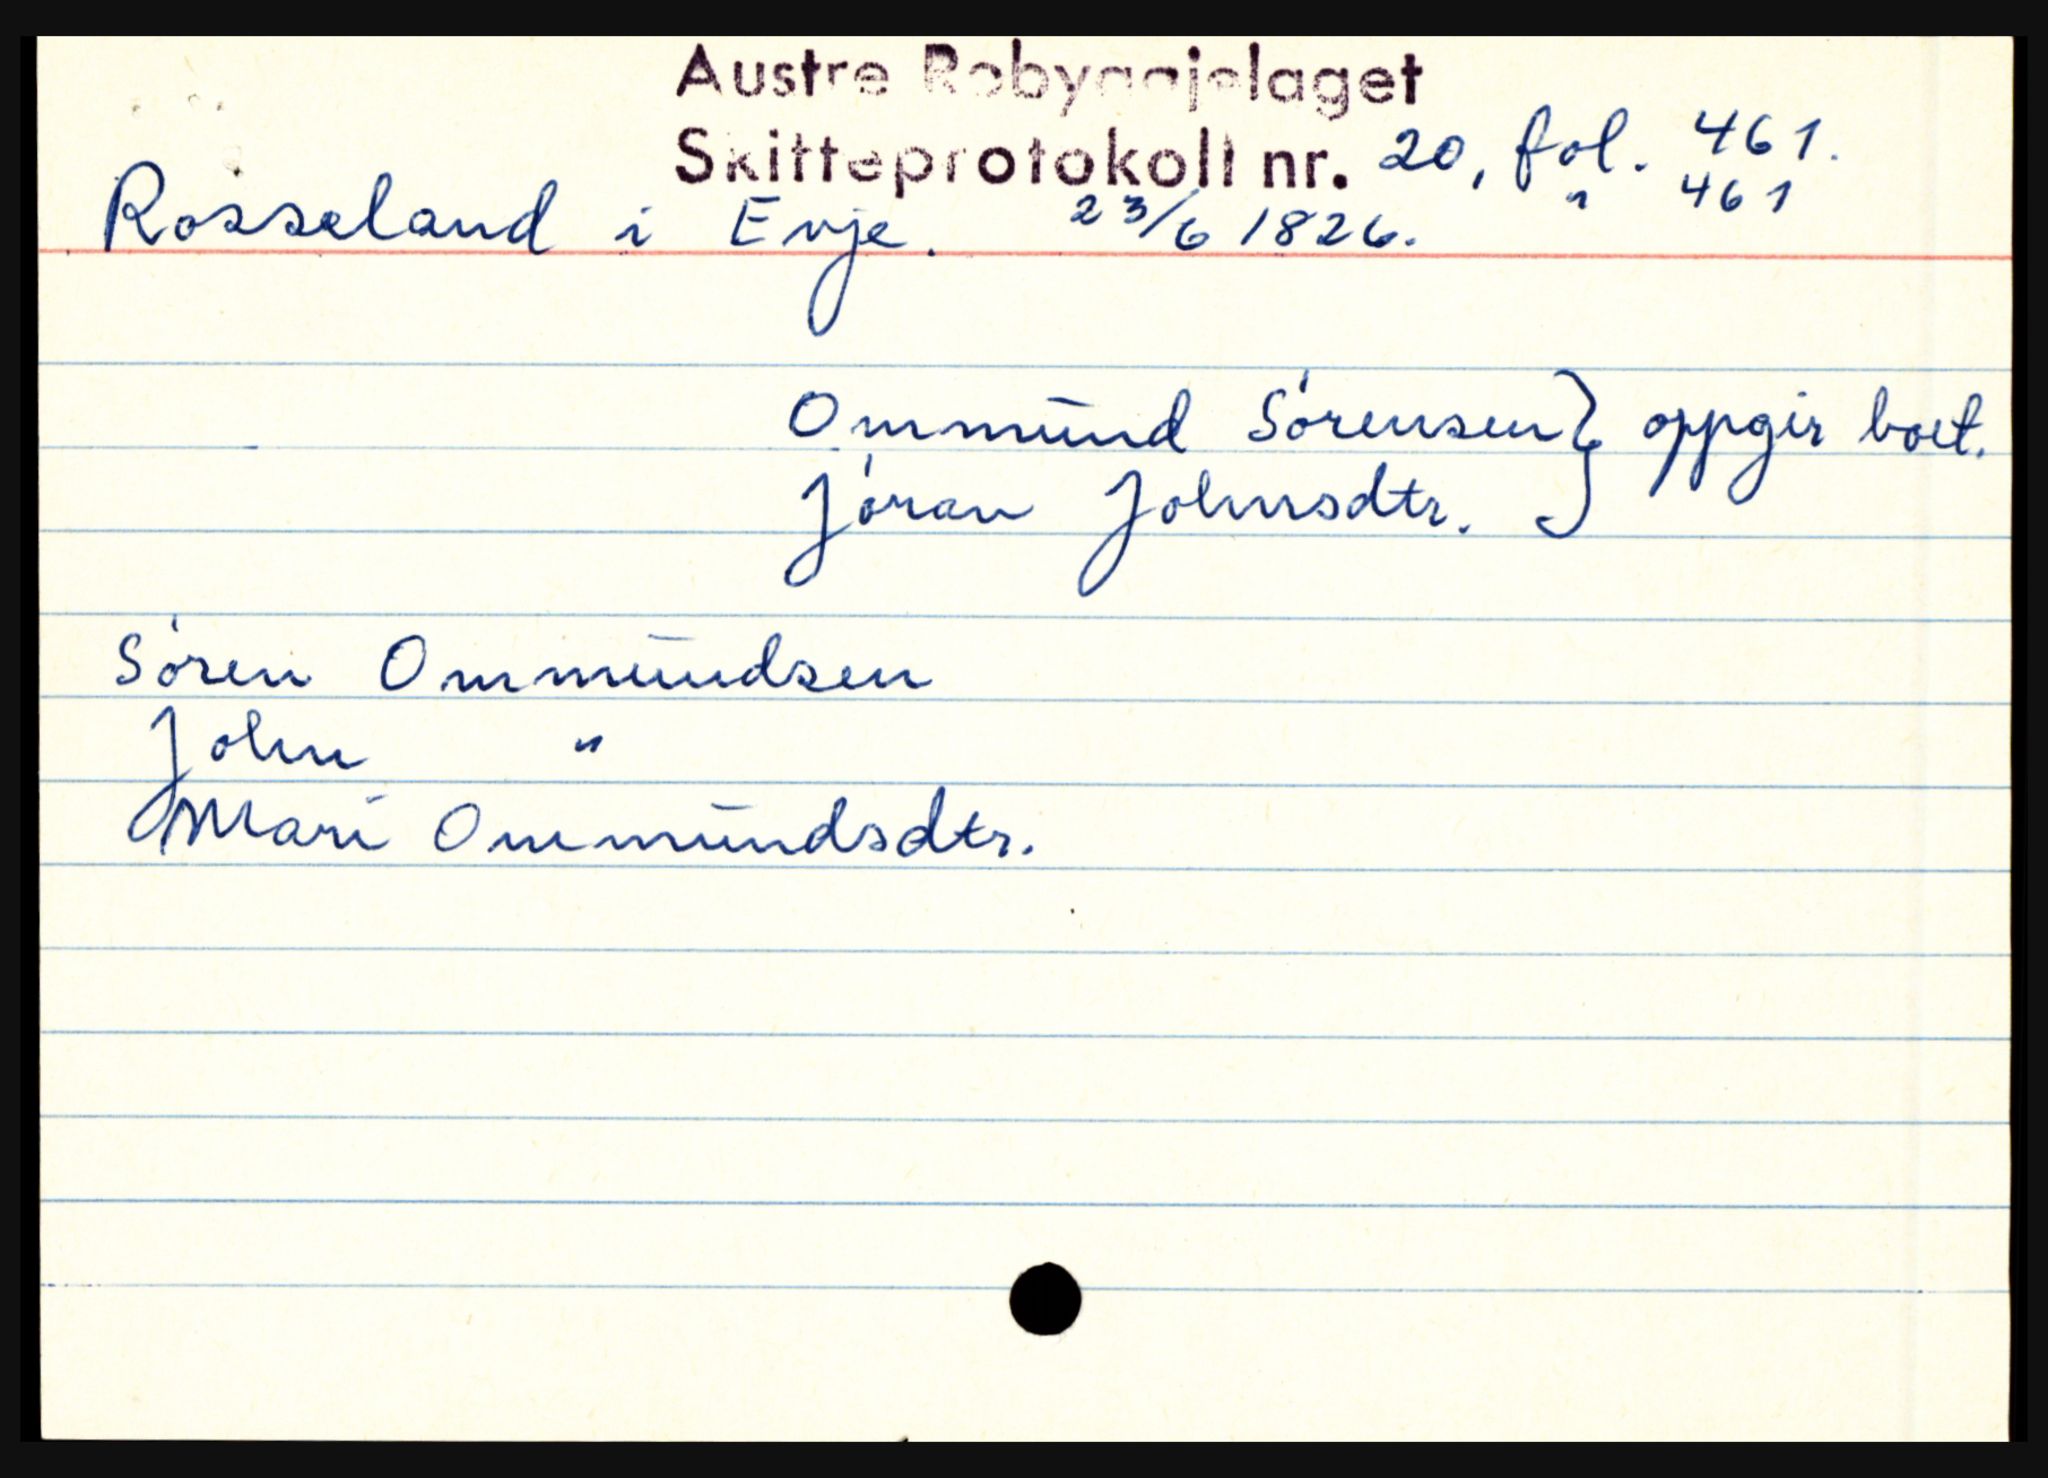 Austre Robyggjelaget
Skifteprotokoll nr. 20, fol. 461.
" 461
Rosseland i Evje. 23/6 1826.
Ommund Sórensen } oppgir boet.
Jóran Johnsdtr.
Sóren Ommundsen
John "
Mari Ommundsdtr.